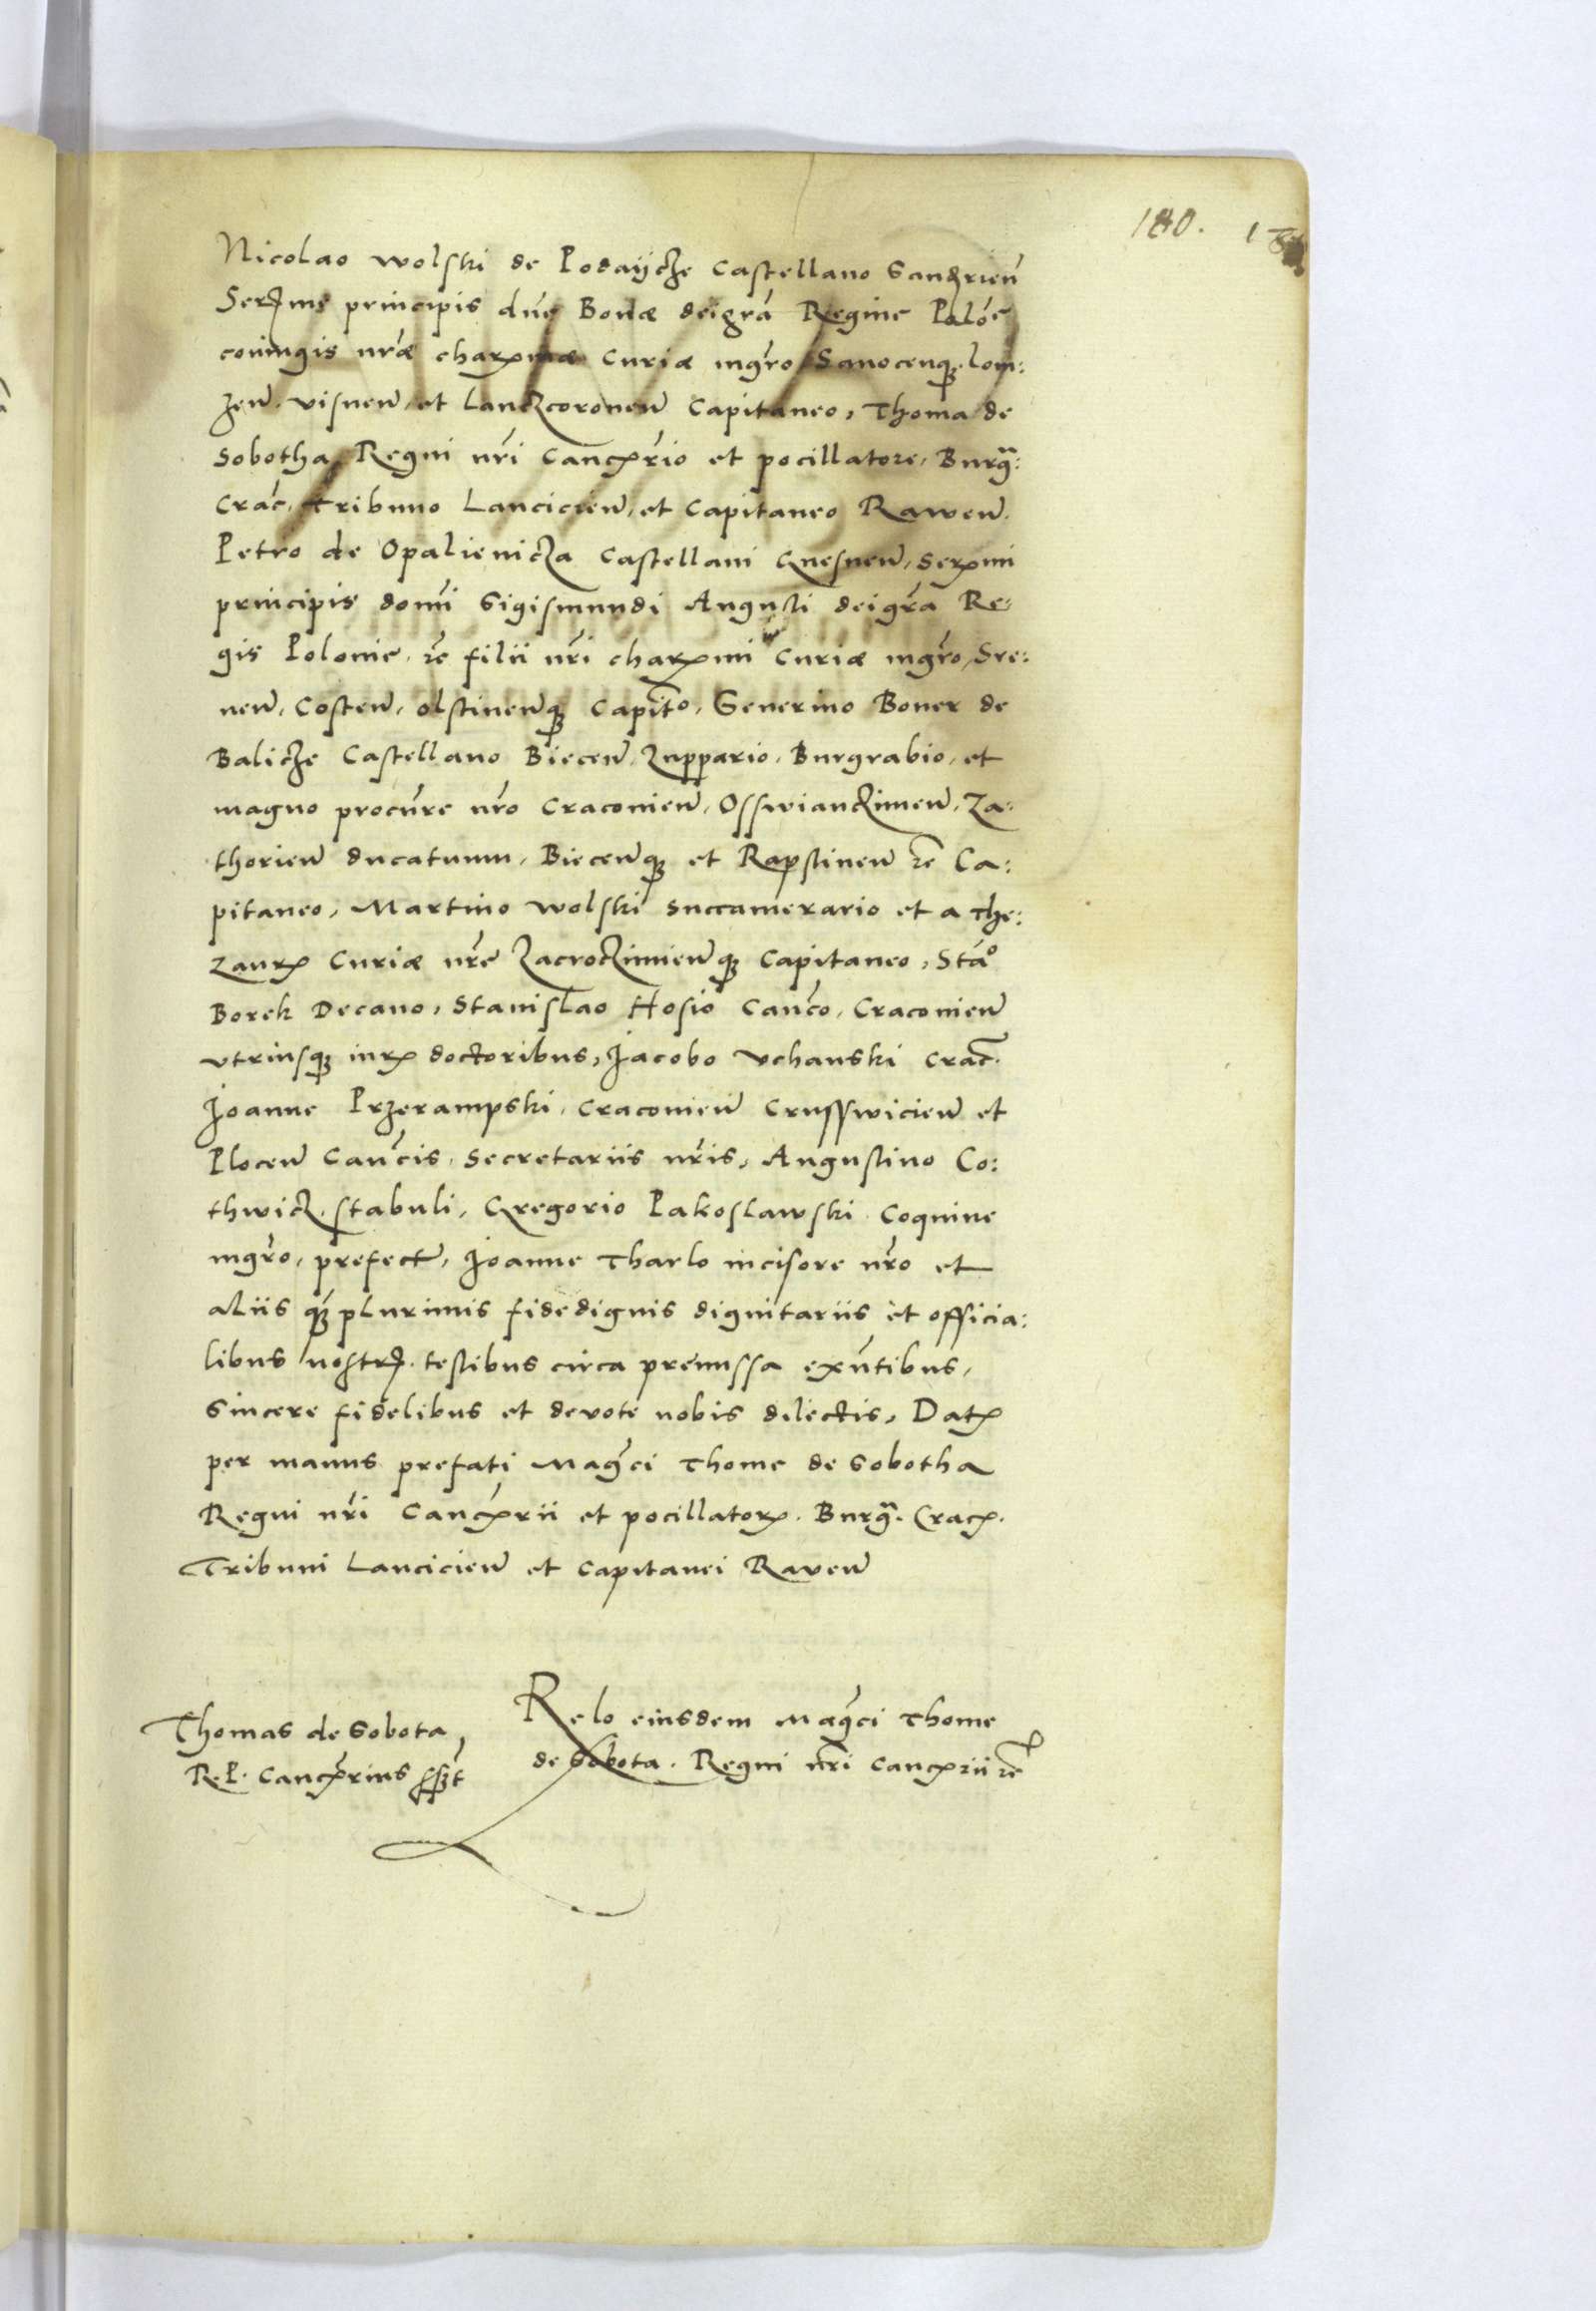 180.
Nicolao wolski de Podaycze Castellano Sandrien̄
Serx̄me principis dn̄e Bonæ deigrā Regine Polōe
coniugis nr̄æ charx̄mæ Curiæ mgr̄o, Sanocenq̢. lom:
zen̄. visnen̄. et lanczcoronen̄ Capitaneo, Thoma de
Sobotha Regni nr̄i Canc̄rio et pocillatore, Burgᵃ:
Crac̄. tribuno Lancicien̄, et Capitaneo Rawen̄.
Petro de Opalienicza Castellani Gnesnen̄, Serx̄mi
principis domi̅ Sigismundi Augusti deigr̄a Re:
gis Polonie. rc̄ filii nr̄i charx̄mi Curiæ mgr̄o, Sre:
nen̄, Costen̄, olstinen̄q̢ Capit̄o, Severino Boner de
Balicze Castellano Biecen̄ Zuppario, Burgrabio, et
magno procūre nr̄o Craconien̄, Osswianczimen̄, Za:
thorien̄ ducatuum, Biecen̄q̢ et Rapstinen̄ rc̄ Ca:
pitaneo, Martino wolski succamerario et a the:
zaurꝝ Curiæ nr̄e Zacroczimien̄q̢ Capitaneo, Stāᵒ
Borek Decano, Stanislao Hosio Can̄co, Craconien̄
vtriusq̢ iurꝝ doctoribus, Jacobo Vchanski Crac̄.
Joanne Przerampski, Craconien̄ Crusswicien̄ et
Plocen̄ Can̄cis, Secretariis nr̄is, Augustino Co:
thwicz. stabuli, Gregorio Pakoslawski Coquine
mgr̄o, prefect̄, Joanne Tharlo incisore nr̄o et
aliis q̢ plurimis fidedignis dignitariis et officia:
libus nostrꝝ. testibus circa premissa exn̄tibus,
Sincere fidelibus et devote nobis dilectis, Datꝝ
per manus prefati Maḡci Thome de Sobotha
Regni nr̄i Canc̄rii et pocillatorꝝ. Burgᵃ. Cracꝝ.
Tribuni Lancicien̄ et Capitanei Raven̄
Thomas de Sobota
R. P. Canc̄rius sspt̄
Relo eiusdem Maḡci Thome
de Sobota. Regni nr̄i Canc̄rii rc̄